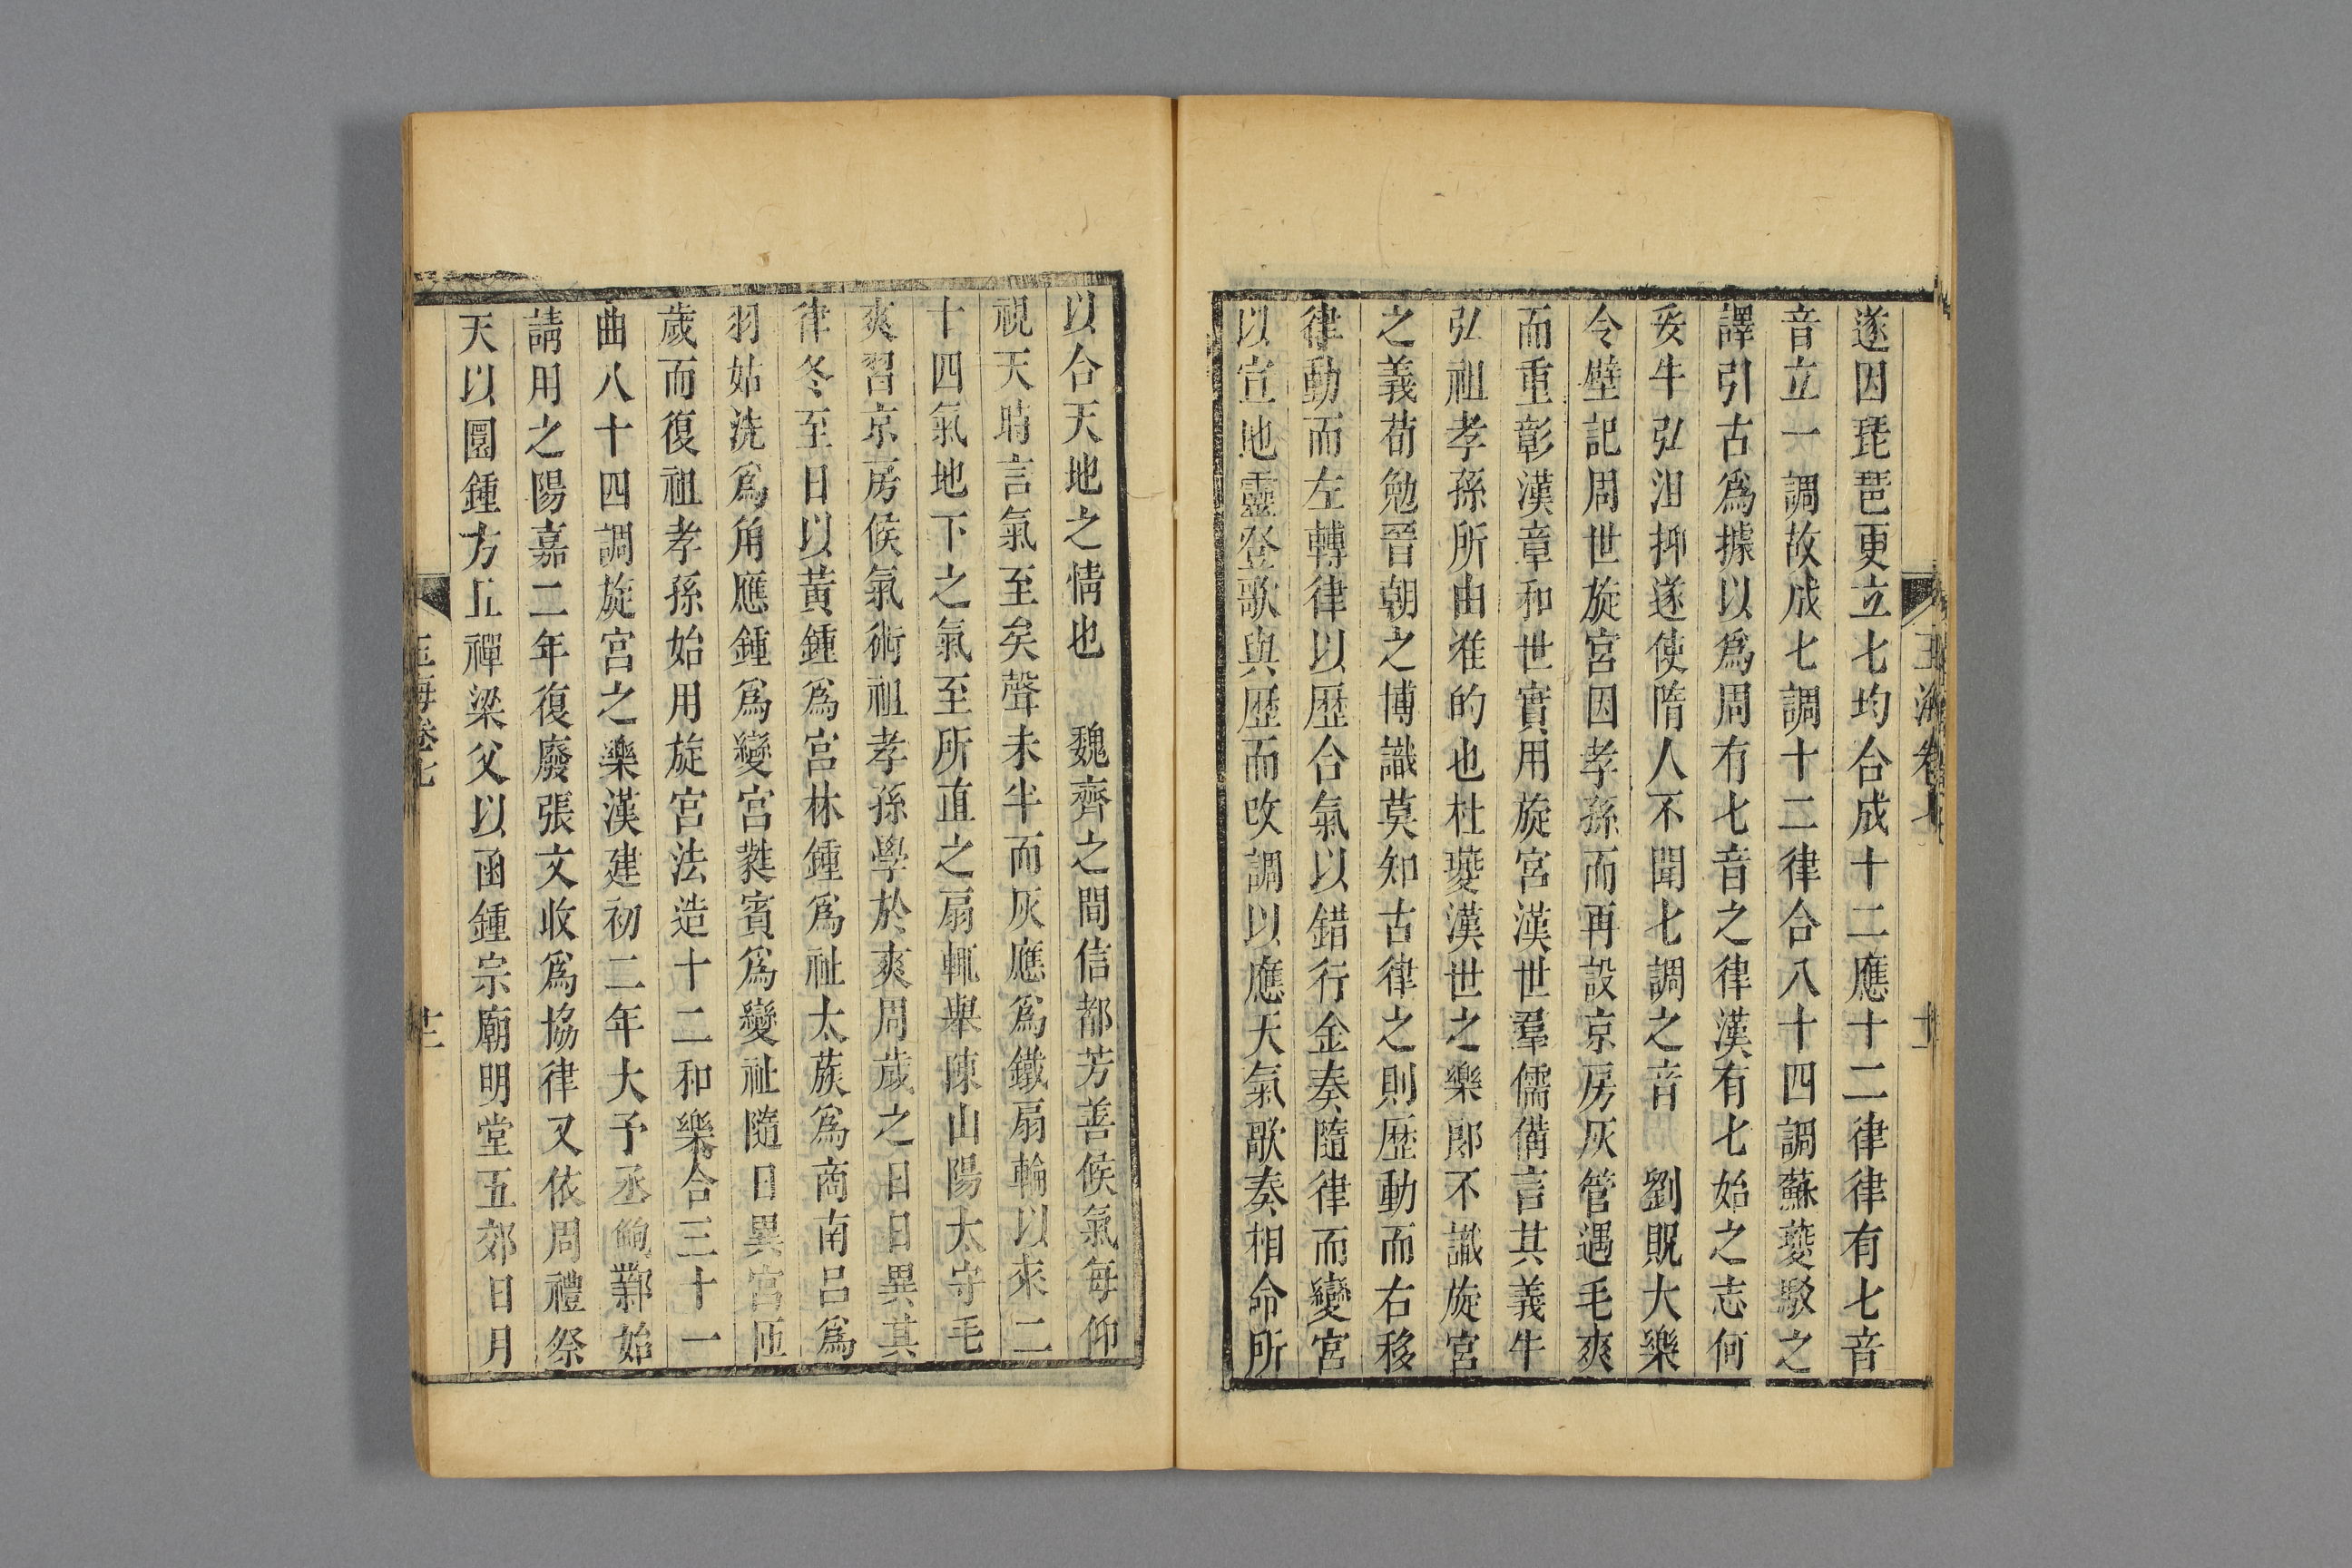 遂因琵琶更立七均合成十二應十二律律有七音
音立一調故成七調十二律合八十四調蘇夔駁之
譯引古爲據以爲周有七音之律漢有七始之志何
妥牛弘沮抑遂使隋人不聞七調之音　劉貺大樂
令壁記周世旋宮因孝孫而再設京房灰管遇毛爽
而重彰漢章和世實用旋宮漢世羣儒備言其義牛
弘祖孝孫所由准的也杜夔漢世之樂郎不識旋宮
之義荀勉晉朝之博識莫知古律之則歷動而右移
律動而左轉律以歷合氣以錯行金奏隨律而變宮
以宣地靈登歌與歷而攺調以應天氣歌奏相命所
以合天地之情也　魏齊之間信都芳善候氣每仰
視天時言氣至矣聲未半而灰應爲鐵扇輪以來二
十四氣地下之氣至所直之扇輒舉陳山陽太守毛
爽習京房候氣術祖孝孫學於爽周歲之日日異其
律冬至日以黃鍾爲宮林鍾爲祉太蔟爲商南呂爲
羽姑洗爲角應鍾爲變宮蕤賓爲變祉隨日異宮匝
歲而復祖孝孫始用旋宮法造十二和樂合三十一
曲八十四調旋宮之樂漢建初二年大予丞鮑鄴始
請用之陽嘉二年復廢張文收爲協律又依周禮祭
天以圜鍾方丘禪梁父以函鍾宗廟明堂五郊日月
玉海卷七